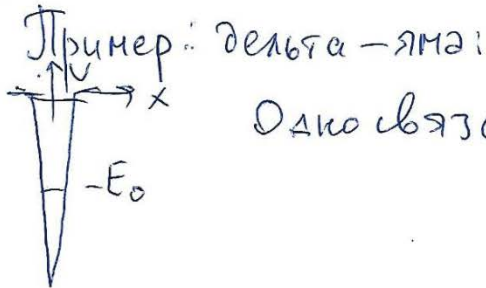 Пример: дельта – яма:
U
x
Одно связ
-E₀